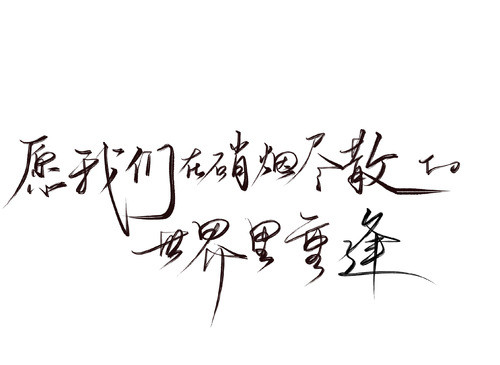 愿我们在硝烟尽散的
世界里重逢